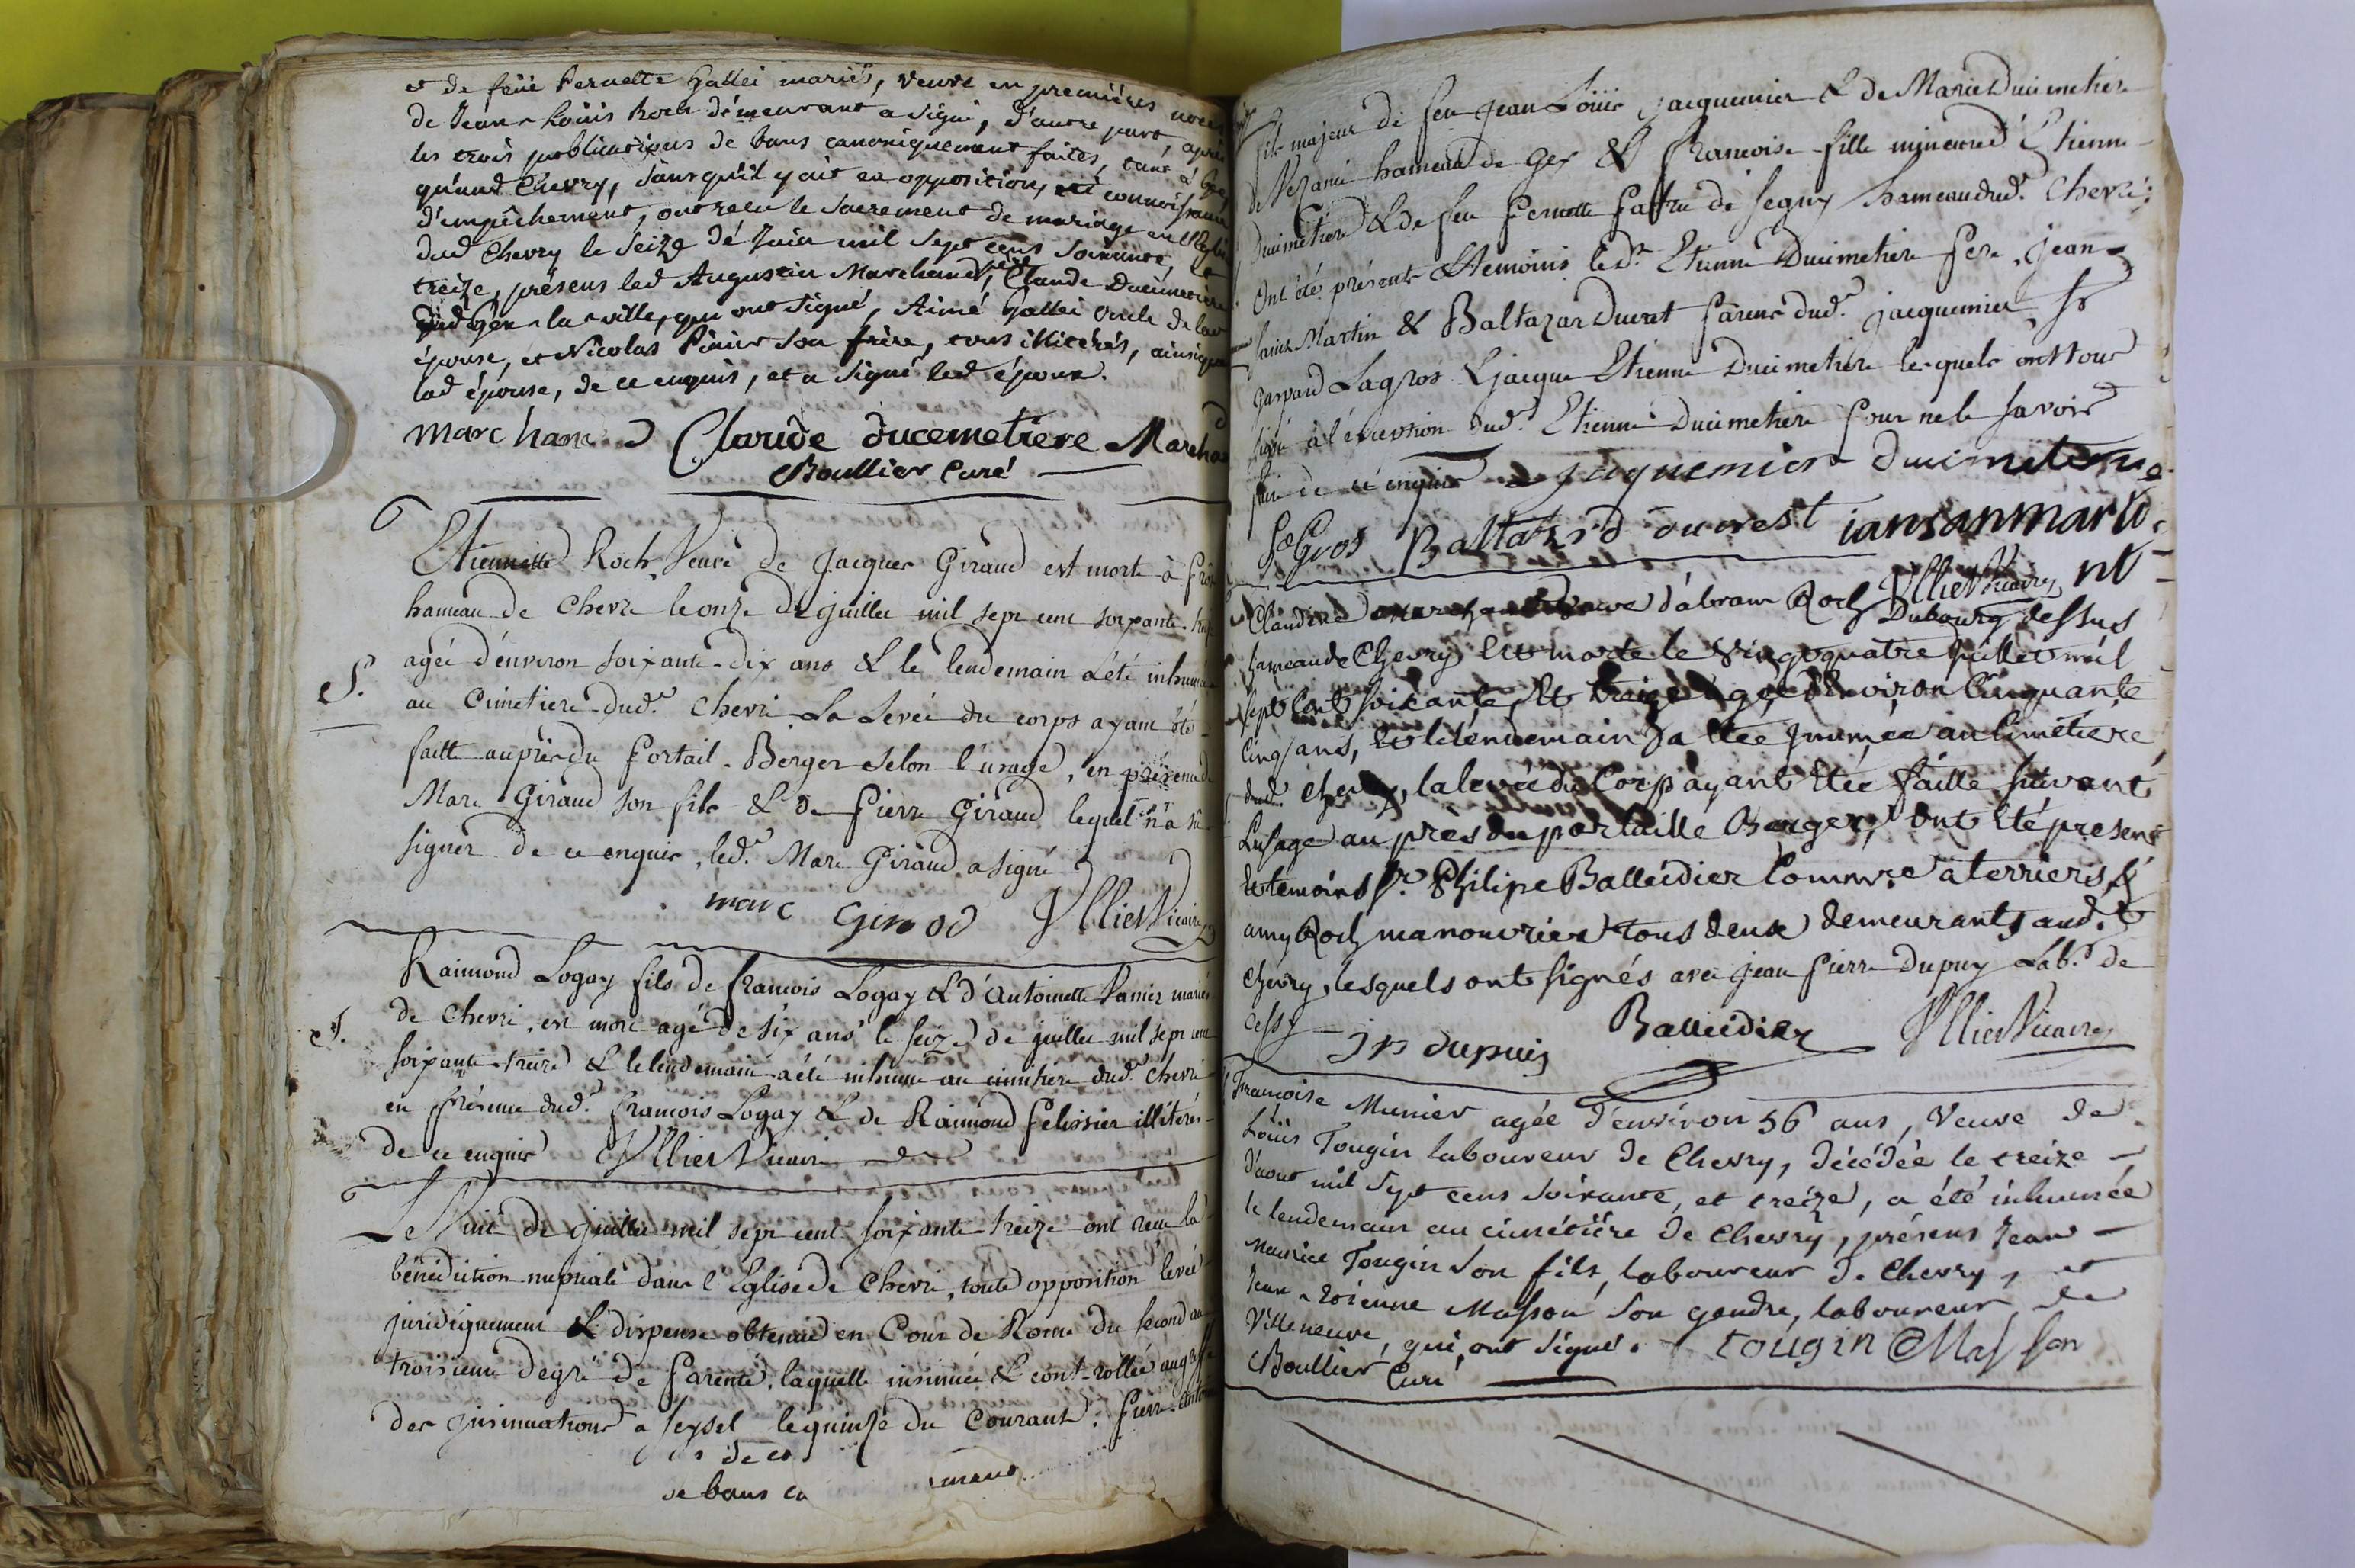 et de feüe Pernette Gallei mariés, veuve en premières noces
de Jean-Loüis Roch démeurant a Ségni, d'autre part, après
les trois publications de bans canoniquement faites, tant à Gex,
qu'aud Chevry, sans qu'il y ait eu opposition, ni connoissance
d'empêchement, ont reçu le Sacrement de mariage en l'Eglise
dud Chevry le Seize dé Juin mil Sept cens Soixante et
treize, présens led Augustin Marchand, père, Claude Ducimetière
dud Gex-la-ville, qui ont Signé, Aimé Gallei oncle de lad
épouse, et Nicolas Panier Son frère, tous illitérés, ainsi que
lad épouse, de ce enquis, et a Signé led époux.
marchand Claude ducemetiere Marchand
Boullier Curé
Etiennette Roch Veuve de Jacques Giraud est morte à
hameau de Chevri le onze de juillet mil sept cent soixante-treize
agée d'environ soixante-dix ans & le lendemain a été inhumée
S.
au Cimetiere dud.t Chevri La Levée du corps ayant été
faitte auprès du Portail-Berger selon l'usage, en présence de
Marc Giraud son fils & de Pierre Giraud lequel n'a sû
signer de ce enquis, led.t Marc Giraud a signé
marc Girod Ullier Vicaire
Raimond Logay fils de francois Logay & d'Antoinette Panier mariés
de Chevri, est mort agé de six ans le seize de juillet mil sept cent
S.
soixante-treize & le lendemain a été inhumé au cimitière dud.t Chevri
en présence dud.t francois Logay & de Raimond Pelissier illitérés
de ce enquis Ullier Vicaire
Le huit de juillet mil sept cent soixante-treize ont reçu la
bénédiction nuptiale dans l'Eglise de Chevri, toute opposition levée
juridiquement & dispense obtenue en Cour de Rome du second au
troisieme degré de Parenté, laquelle insinuée & cont-rollée au greffe
des insinuations a Seyssel le quinze du Courant: Pierre-Antoine
de et
de bans ca
fils majeur de feu Jean Loüis Jacquemier & de Marie Ducimetière
de Vezanci hameau de Gex & francoise fille mineure d'Etienne
Ducimetiere & de feu Pernette Patru de Segny hameau dud.t Chevri;
Ont été présents & temoins led.t Etienne Ducimetiere Pere, Jean
saint Martin & Baltazar Duvret Parens dud.t Jacquemier, Sr
Gaspard Lagros & Jacque Etienne Ducimetière lesquels ont tous
signé à l'éxeption dud.t Etienne Ducimetière pour ne le savoir
faire de ce enquis Jaquemier ducimetiere
Gros Baltahzrd ouvrest iansanmarti
Ullier Vicaire nt
Claudine Marchand veuve d'abram Roch Dubourg dessus
hameau de Chevry est morte le vingt quatre juillet mil
sept Cent soixante et traize agée d'environ Cinquante
Cinq ans, et le lendemain a etée Inumée au Cimétiere
dud.t Chevry, la levée du Corp ayant etée faitte suivant
Lusage au près du portaille Berger, Ont été présent
et temoins Sr. Philipe Balleidier Commire a terriers, &
amy Roch manouvrier tous deux demeurants aud.t
Chevry, lesquels ont signés avec jean Pierre Dupuy Lab.r de
Cessy jp dupuis Balleidier Ullier Vicaire
Francoise Munier agée d'environ 56 ans, Veuve de
Loüis Tougin laboureur de Chevry, décédée le treize
d'aout mil Sept cens Soixante, et treize, a été inhumée
le lendemain au cimétiére de Chevry, présens Jean
Maurice Tougin Son fils, laboureur de Chevry, et
Jean-Etienne Masson Son gendre, laboureur de
Villeneuve, qui ont signé. tougin Masson
Boullier Curé